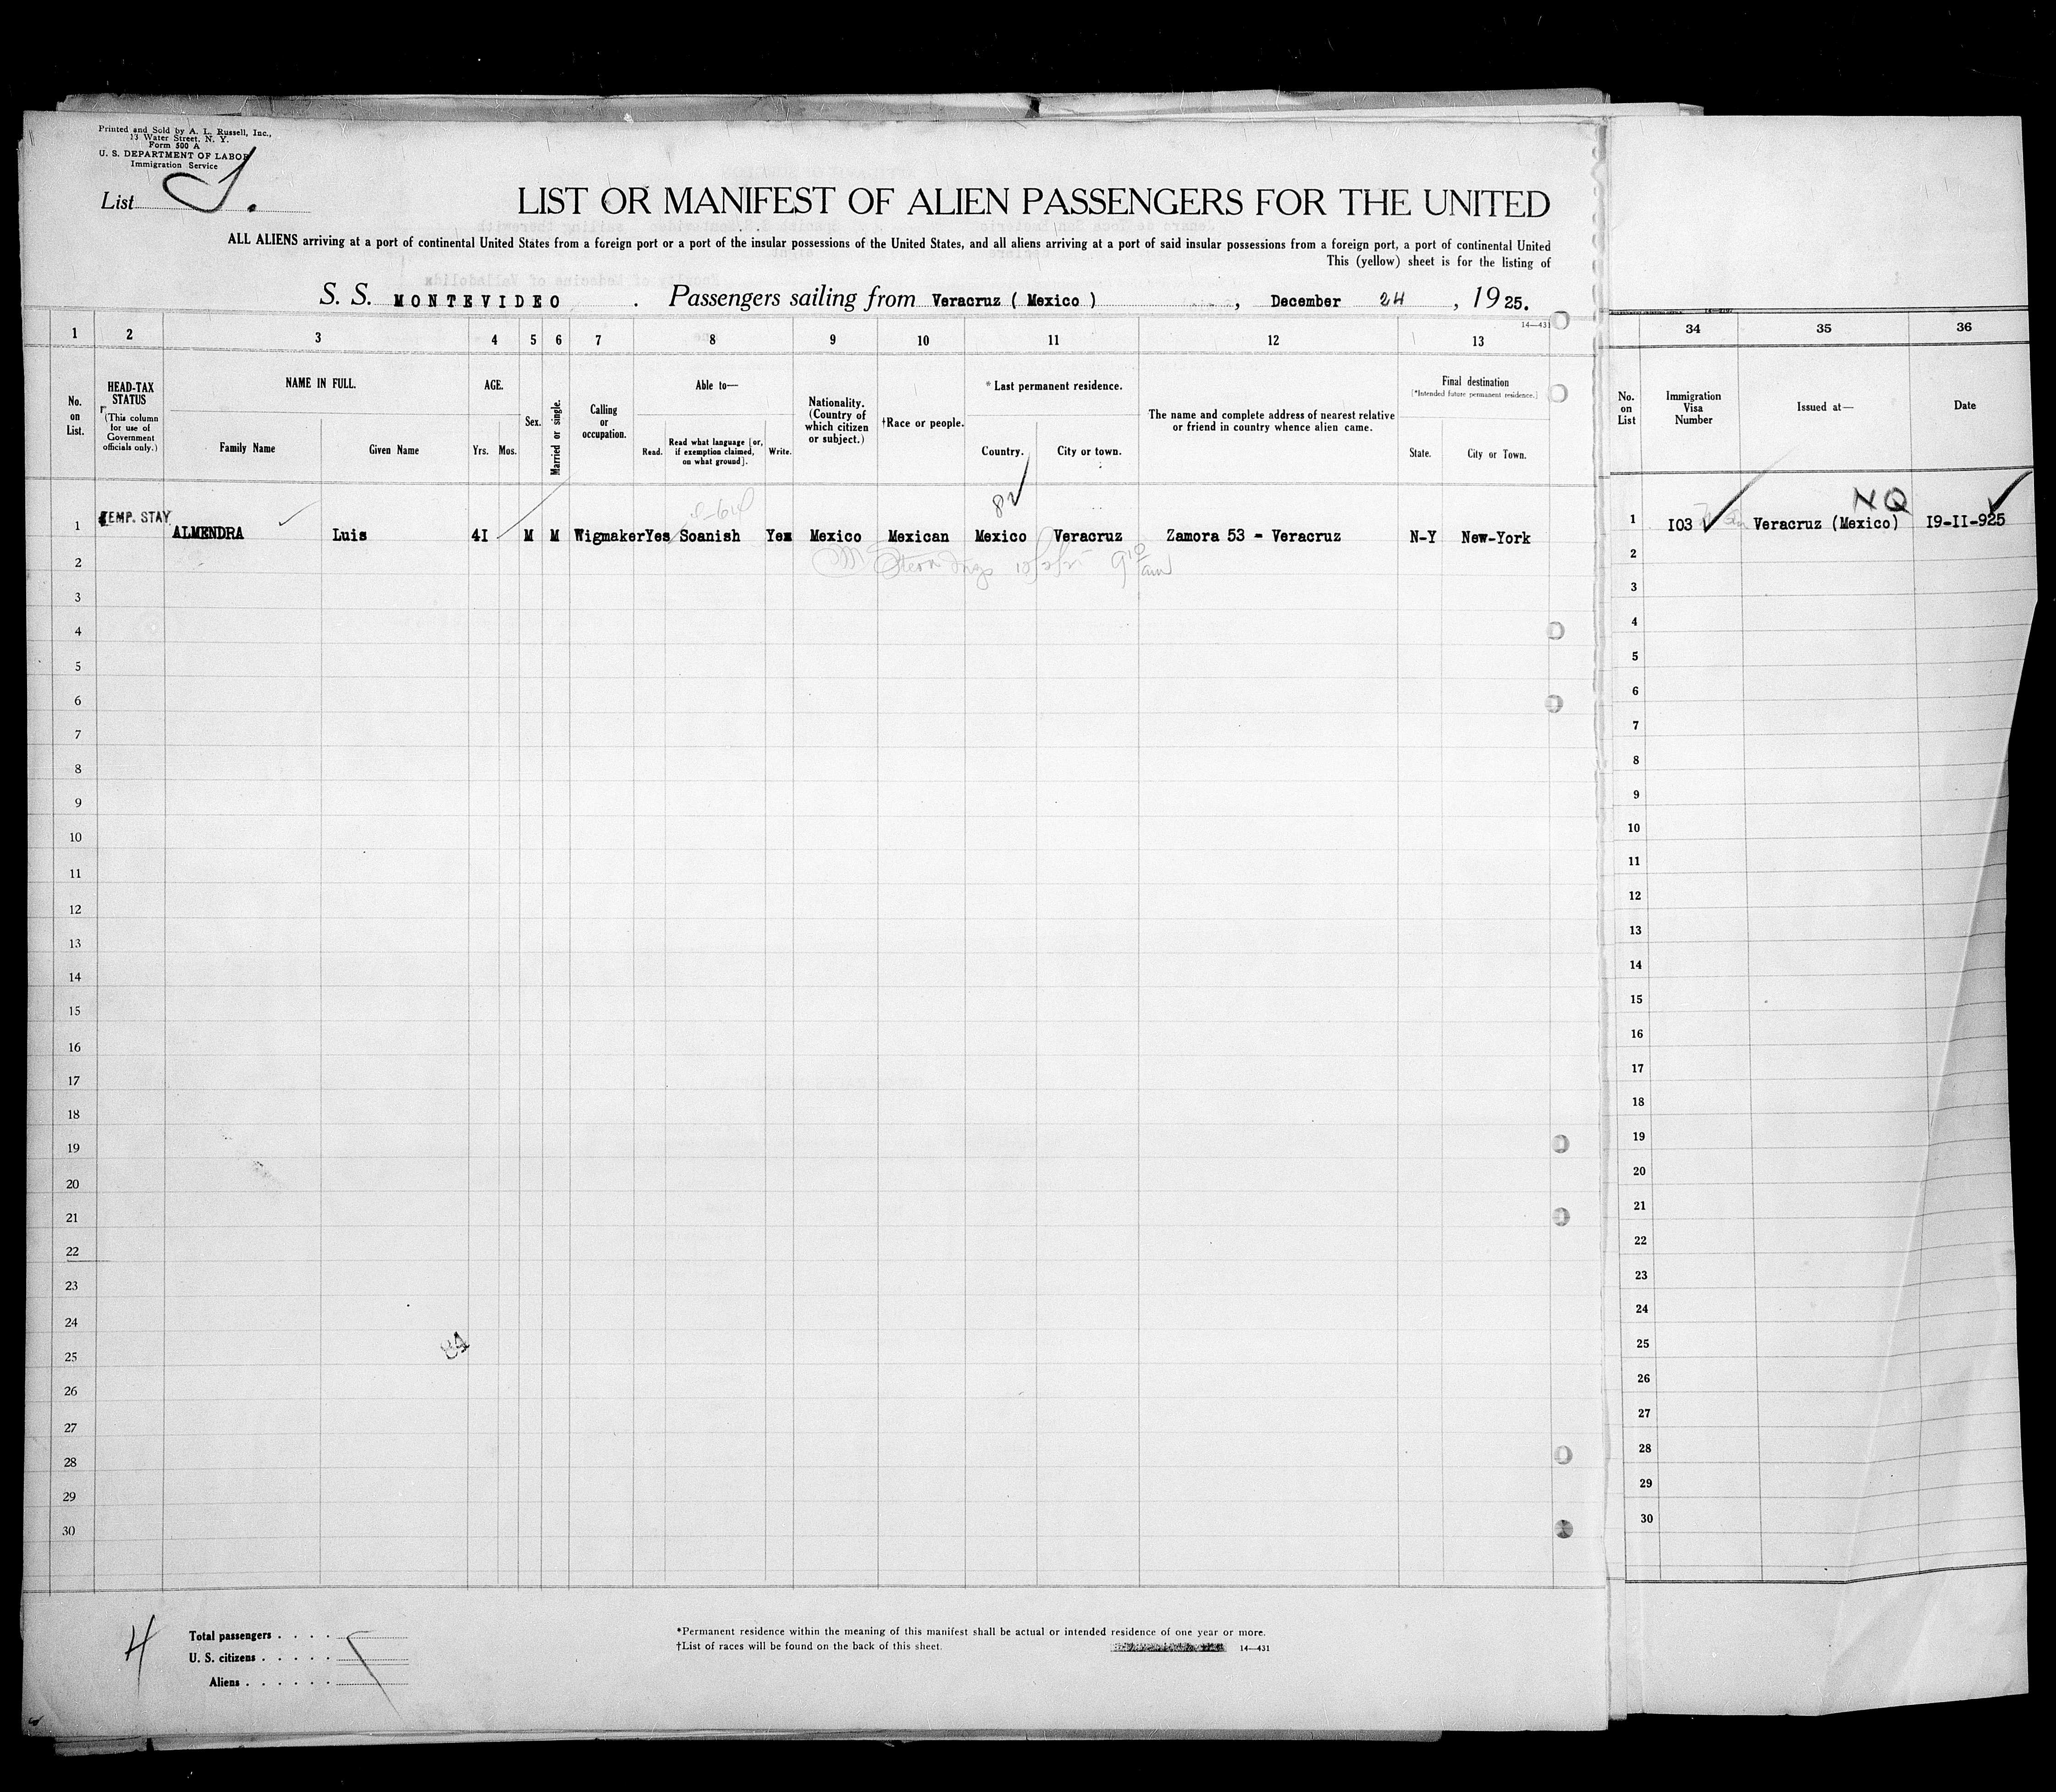 Printed and Sold by A. L. Russell, Inc.,
13 Water Street, N. Y.
Form 500 A
U. S. DEPARTMENT OF LABOR
Immigration Service
List
LIST OR MANIFEST OF ALIEN PASSENGERS FOR THE UNITED
ALL ALIENS arriving at a port of continental United States from a foreign port or a port of the insular possessions of the United States, and all aliens arriving at a port of said insular possessions from a foreign port, a port of continental United
This (yellow) sheet is for the listing of
S. S. MONTEVIDEO . Passengers sailing from Veracruz ( Mexico ) , December 24 , 1925.
14—431
1 2 3 4 5 6 7 8 9 10 11 12 13 34 35 36
No. on List.
HEAD-TAX STATUS
(This column for use of Government officials only.)
NAME IN FULL.
Family Name Given Name
AGE.
Yrs. Mos.
Sex.
Married or single.
Calling or occupation.
Able to—
Read. Read what language [or, if exemption claimed, on what ground]. Write.
Nationality. (Country of which citizen or subject.)
†Race or people.
* Last permanent residence.
Country. City or town.
The name and complete address of nearest relative or friend in country whence alien came.
Final destination
[*Intended future permanent residence.]
State. City or Town.
No. on List
Immigration Visa Number
Issued at—
Date
NQ
TEMP. STAY
1 ALMENDRA Luis 4I M M Wigmaker Yes Soanish Yes Mexico Mexican Mexico Veracruz Zamora 53 - Veracruz N-Y New-York 1 I03 Veracruz (Mexico) I9-II-925
2 2
3 3
4 4
5 5
6 6
7 7
8 8
9 9
10 10
11 11
12 12
13 13
14 14
15 15
16 16
17 17
18 18
19 19
20 20
21 21
22 22
23 23
24 24
84
25 25
26 26
27 27
28 28
29 29
30 30
Total passengers . . . .
U. S. citizens . . . . .
Aliens . . . . . .
*Permanent residence within the meaning of this manifest shall be actual or intended residence of one year or more.
†List of races will be found on the back of this sheet.
14—431